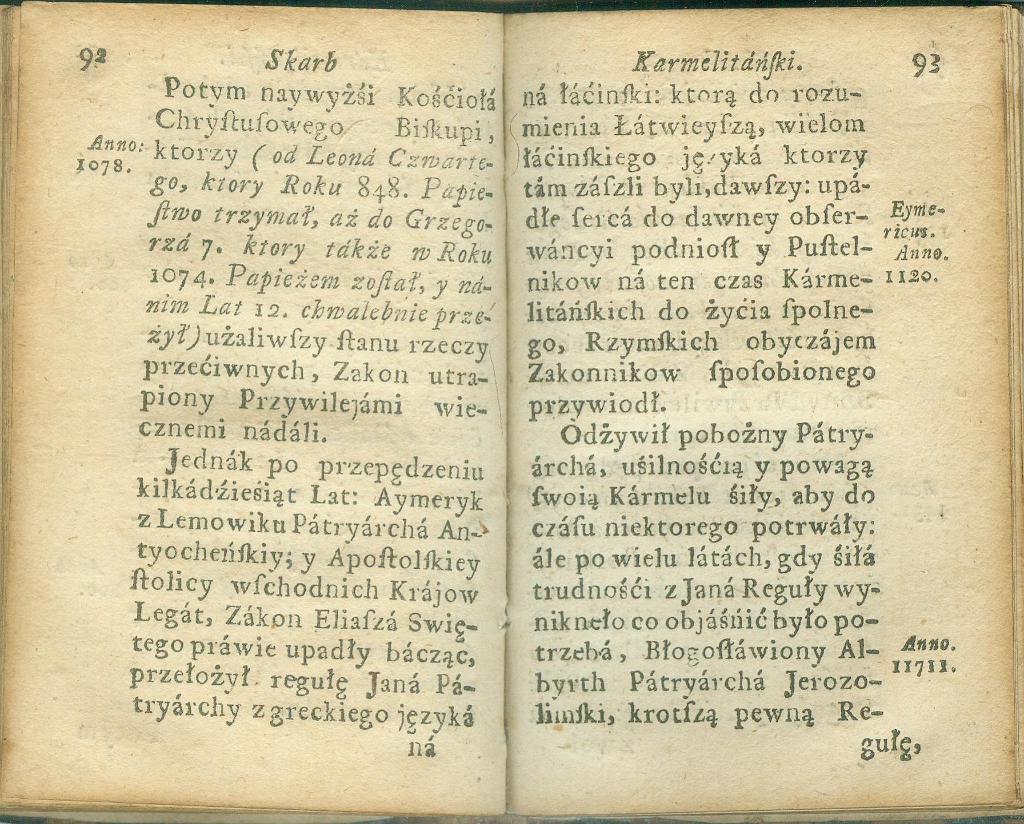 92 Skarb
Potym naywyżśi Kośćiołá
Chryſtuſowego Biſkupi,
Anno: 1078.
ktorzy (od Leoná Czwarte-
go, ktory Roku 848. Papie-
ſtwo trzymał, aż do Grzego-
rzá 7. ktory tákże w Roku
1074. Papieżem zoſtał, y ná-
nim Lat 12. chwalebnie prze-
żył) użaliwſzy ſtanu rzeczy
przećiwnych, Zakon utra-
piony Przywilejámi wie-
cznemi nádáli.
Jednák po przepędzeniu
kilkádźieśiąt Lat: Aymeryk
z Lemowiku Pátryárchá An-
tyocheńſkiy; y Apoſtolſkiey
ſtolicy wſchodnich Krájow
Legát, Zákon Eliaſzá Swię-
tego práwie upadły bácząc,
przełożył regułę Janá Pá-
tryárchy z greckiego języká
ná
Karmelitáńſki. 93
ná łáćinſki: ktorą do rozu-
mienia Łátwieyſzą, wielom
łáćinſkiego języká ktorzy
tám záſzli byli, dawſzy: upá-
dłe ſercá do dawney obſer-
wáncyi podnioſł y Puſtel-
nikow ná ten czas Kárme-
litáńſkich do życia ſpolne-
go, Rzymſkich obyczájem
Zakonnikow ſpoſobionego
przywiodł.
Eyme-
ricus.
Anno.
1120.
Odżywił pobożny Pátry-
árchá, uśilnośćią y powagą
ſwoią Kármelu śiły, aby do
czáſu niektorego potrwáły:
ále po wielu látách, gdy śiłá
trudnośći z Janá Reguły wy-
niknęło co objáśńić było po-
trzebá, Błogoſłáwiony Al-
byrth Pátryárchá Jerozo-
limſki, krotſzą pewną Re-
Anno.
11711.
gułę,